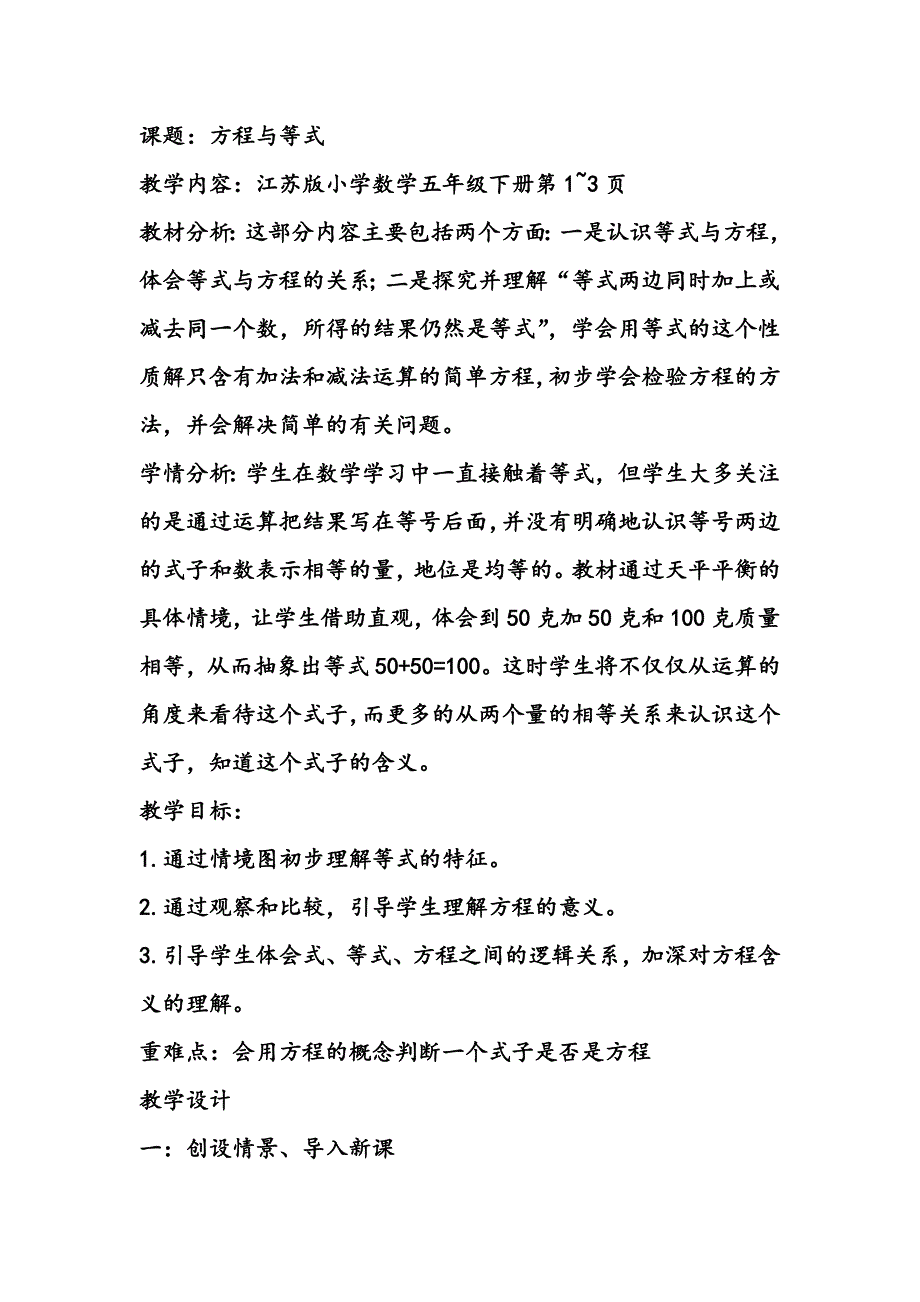 课题：方程与等式
教学内容：江苏版小学数学五年级下册第1~3页
教材分析：这部分内容主要包括两个方面：一是认识等式与方程，
体会等式与方程的关系；二是探究并理解“等式两边同时加上或
减去同一个数，所得的结果仍然是等式”，学会用等式的这个性
质解只含有加法和减法运算的简单方程，初步学会检验方程的方
法，并会解决简单的有关问题。
学情分析：学生在数学学习中一直接触着等式，但学生大多关注
的是通过运算把结果写在等号后面，并没有明确地认识等号两边
的式子和数表示相等的量，地位是均等的。教材通过天平平衡的
具体情境，让学生借助直观，体会到50克加50克和100克质量
相等，从而抽象出等式50+50=100。这时学生将不仅仅从运算的
角度来看待这个式子，而更多的从两个量的相等关系来认识这个
式子，知道这个式子的含义。
教学目标：
1.通过情境图初步理解等式的特征。
2.通过观察和比较，引导学生理解方程的意义。
3.引导学生体会式、等式、方程之间的逻辑关系，加深对方程含
义的理解。
重难点：会用方程的概念判断一个式子是否是方程
教学设计
一：创设情景、导入新课